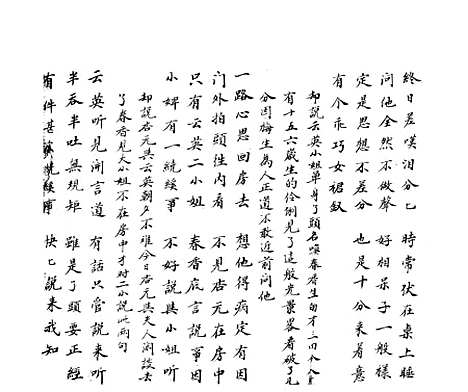 終日差嘆泪分乚　時常伏在桌上睡
问他全然不做聲　好相呆子一般樣
定是思想不差分　也是十分來着意
有个乖巧女裙釵
却說云英小姐单身了頭名喚春香生旬才二四个人
有十五六歲生的伶俐見了這般光景畧看破了
分因梅生為人正道不敢近前问他
一路心思回房去　想他得病定有因
门外抬頭徃内看　不見杏元在房中
只有云英二小姐　春香啟言說事因
小婢有一繞綾事　不好說與小姐听
却説杏元與云英朝夕不难今日杏元與夫人闲談去
了春香見大小姐不在房中才对二小説此两句
云英听見闹言道　有話只管說來听
半吞半吐無規矩　雖是了頭要正經
有件甚　事　快乚說來我知